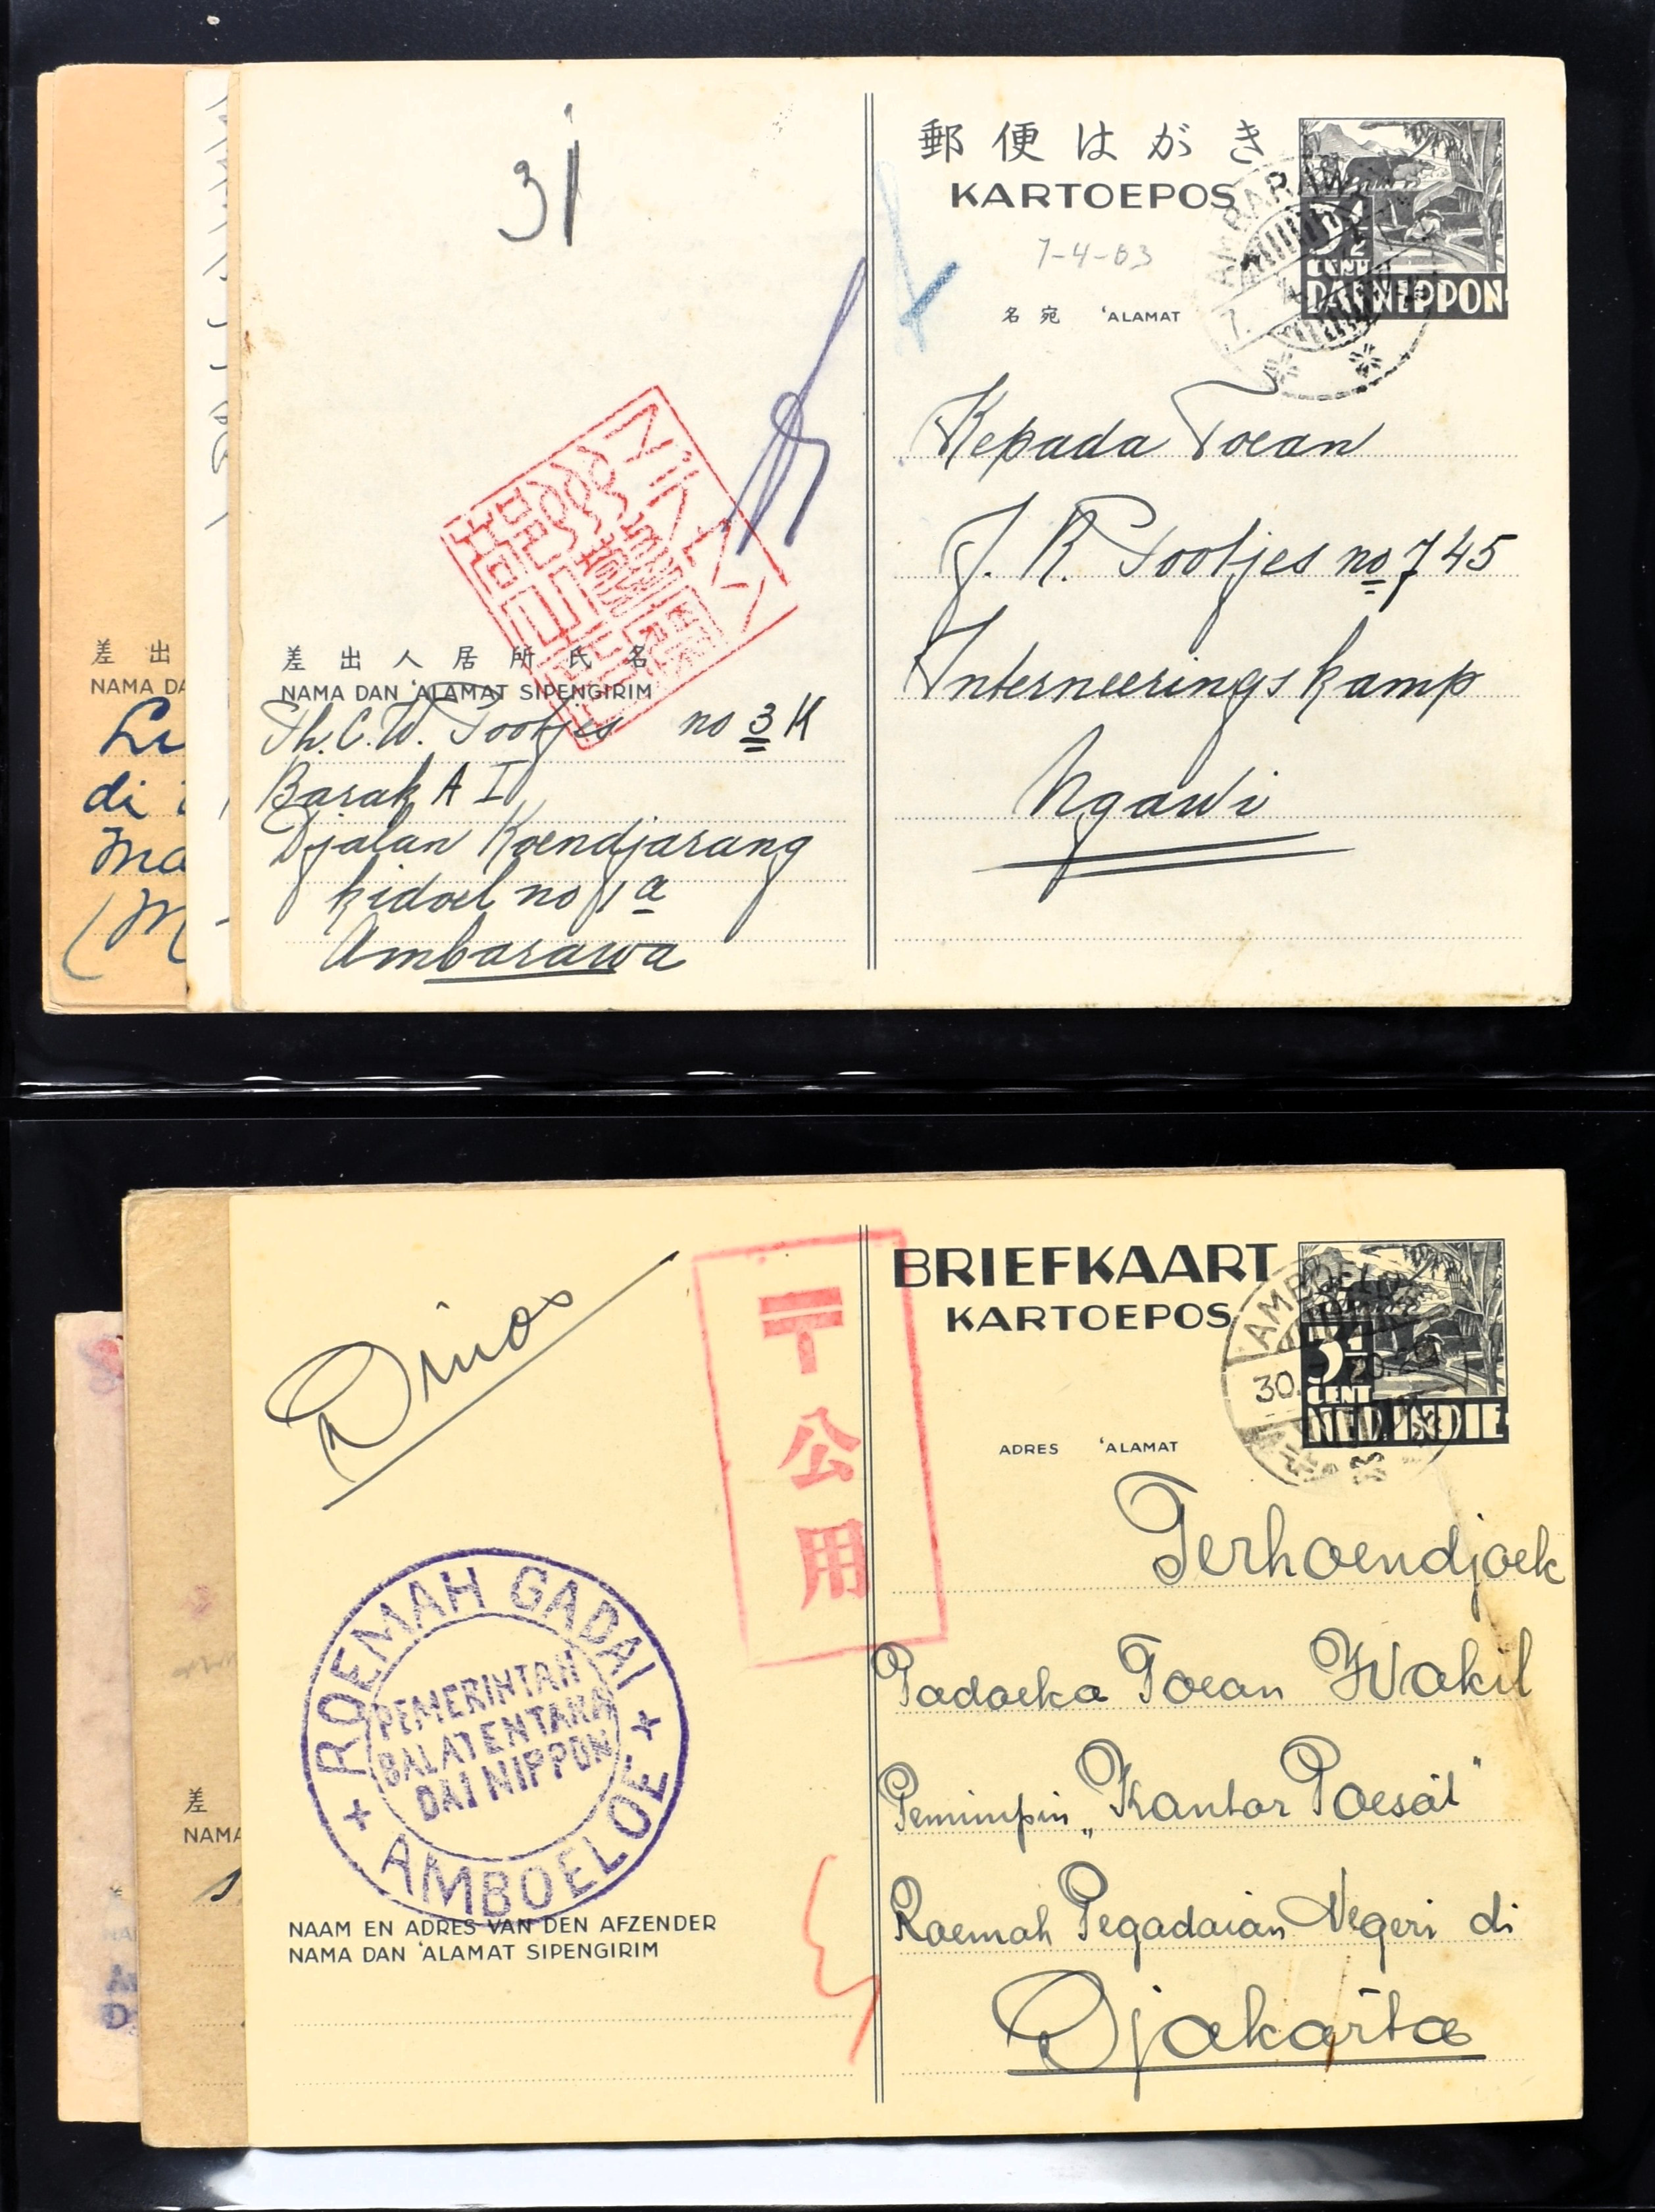 31
郵便はがき
KARTOEPOS
7-4-03
名宛 'ALAMAT
3½
CENT
DAI NIPPON
AMBARAWA
7.
Kepada Toean
J. R. Tootjes no 745
Interneeringskamp
Ngawi
差出人居所氏名
NAMA DAN 'ALAMAT SIPENGIRIM
Th. C. W. Tootjes no 3 K
Barak A I
Djalan Koendjarang
kidoel no 1a
Ambarawa
差出
NAMA DA
di
Ma
(M
BRIEFKAART
KARTOEPOS
3½
CENT
NED. INDIE
AMBOELOE
30.
ADRES 'ALAMAT
Dinas
〒公用
Terhoendjoek
Padoeka Toean Wakil
Pemimpin „Kantor Poesat"
Roemah Pegadaian Negeri di
Djakarta
ROEMAH GADAI
PEMERINTAH
BALATENTARA
DAI NIPPON
AMBOELOE
NAAM EN ADRES VAN DEN AFZENDER
NAMA DAN 'ALAMAT SIPENGIRIM
差
NAMA